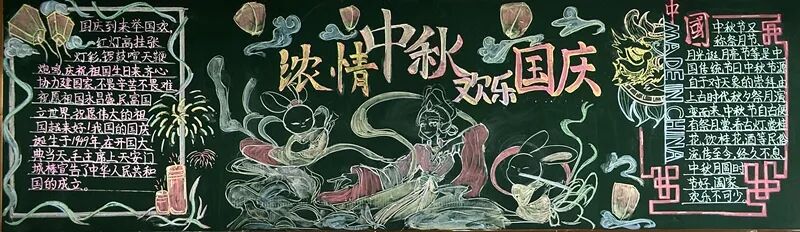 国庆到来举国欢。
红灯高挂张
灯彩锣鼓喧天鞭
炮鸣庆祝祖国生日来齐心
协力建国家不畏辛苦不畏难
祝愿祖国永昌盛民富国
立世界祝愿伟大的祖
国越来好!我国的国庆
诞生于1949年在开国大
典当天毛主席上天安门
城楼宣告了中华人民共和
国的成立。
浓情中秋
欢乐国庆
中國
MADE IN CHINA
中秋节又
称祭月节、
月光诞、月亮节等是中
国传统节日中秋节源
自于对天象的崇拜由
上古时代秋夕祭月演
变而来中秋节自古便
有祭月赏月看古灯赏桂
花、饮桂花酒等民俗
流传至今,经久不息
中秋月圆时
节好,阖家
欢乐不可少。